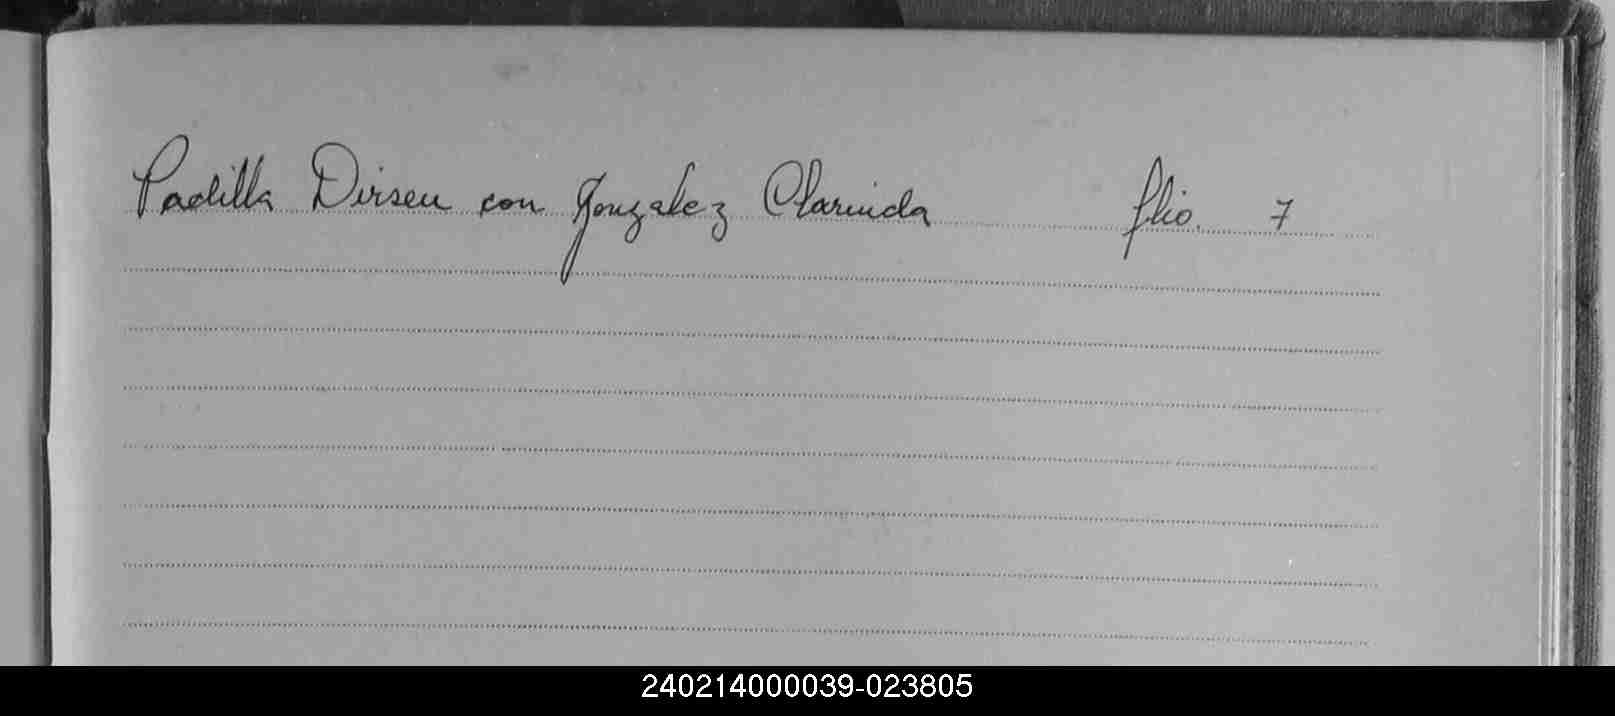 Padilla Dirseu con Gonzalez Clarinda flio. 7
240214000039-023805